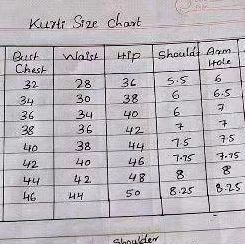 Kurti Size Chart
Bust Chest Waist Hip Shoulder Arm Hole
32 28 36 5.5 6
34 30 38 6 6.5
36 34 40 6 7
38 36 42 7 7
40 38 44 7.5 7.5
42 40 46 7.75 7.75
44 42 48 8 8
46 44 50 8.25 8.25
Shoulder